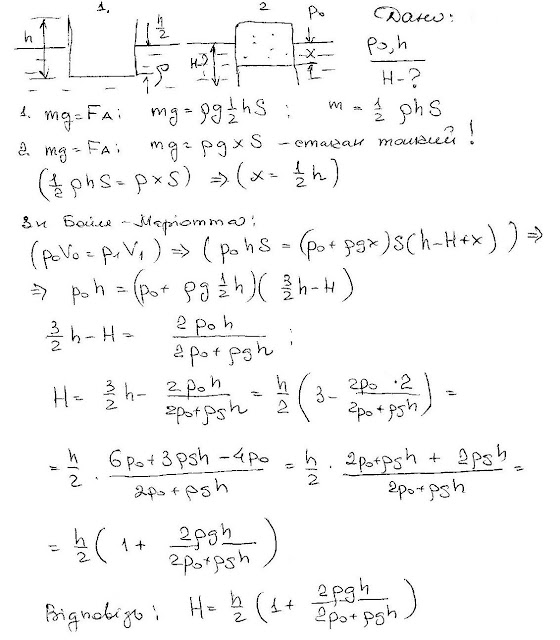 1.
2
Дано:
h
h/2
ρ
H-?
p₀
x
p₀, h
H-?
1. mg=F_A; mg=ρg½hS; m=½ρhS
2. mg=F_A; mg=ρgxS – стакан тонкий!
(½ρhS=ρxS) ⇒ (x=½h)
Зн Бойля-Маріотта:
(p₀V₀=p₁V₁) ⇒ (p₀hS=(p₀+ρgx)S(h-H+x)) ⇒
⇒ p₀h=(p₀+ρg½h)(3/2h-H)
3/2h-H=2p₀h/(2p₀+ρgh);
H=3/2h-2p₀h/(2p₀+ρgh)=h/2(3-2p₀·2/(2p₀+ρgh))=
=h/2·(6p₀+3ρgh-4p₀)/(2p₀+ρgh)=h/2·(2p₀+ρgh+2ρgh)/(2p₀+ρgh)=
=h/2(1+2ρgh/(2p₀+ρgh))
Відповідь: H=h/2(1+2ρgh/(2p₀+ρgh))